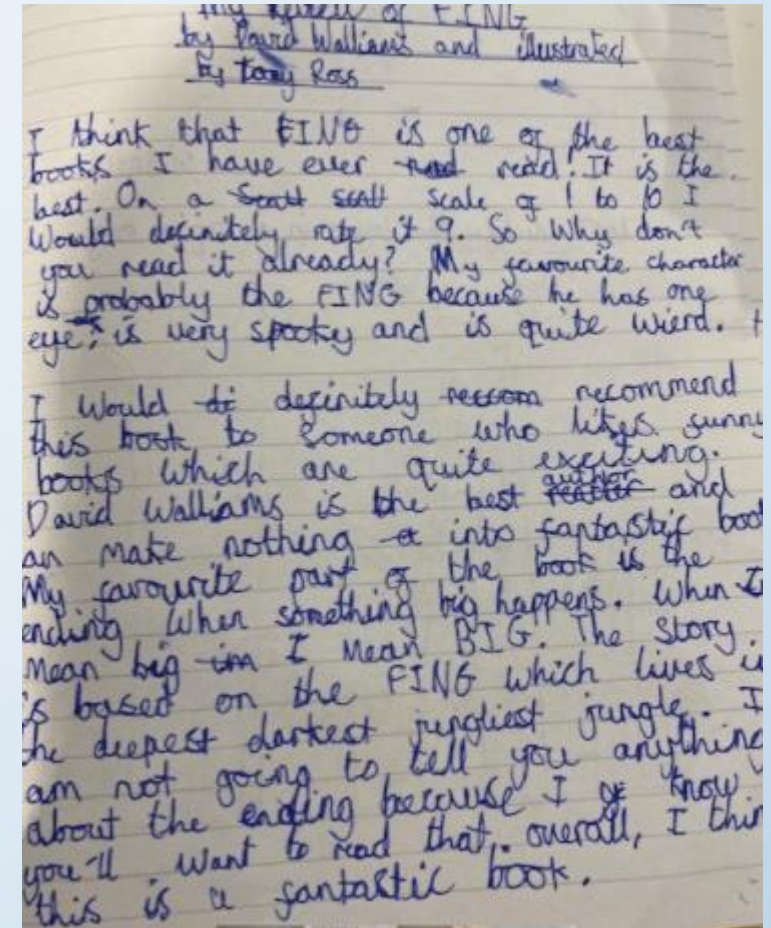 My Review of FING
by David Walliams and illustrated
by Tony Ross
I think that FING is one of the best
books I have ever read read! It is the
best. On a scale of 1 to 10 I
Would definitely rate it 9. So Why don't
you read it already? My favourite character
is probably the FING because he has one
eye, is very spooky and is quite wierd.
I Would di definitely reccom recommend
this book to someone who likes funny
books which are quite exciting.
author
David Walliams is the best and
an make nothing a into fantastic boo
My favourite part of the book is the
ending When something big happens. When I
Mean big im I Mean BIG. The Story.
is based on the FING which lives i
he deepest darkest jungliest jungle. I
am not going to tell you anything
about the ending because I know
you'll want to read that. overall, I thin
this is a fantastic book.